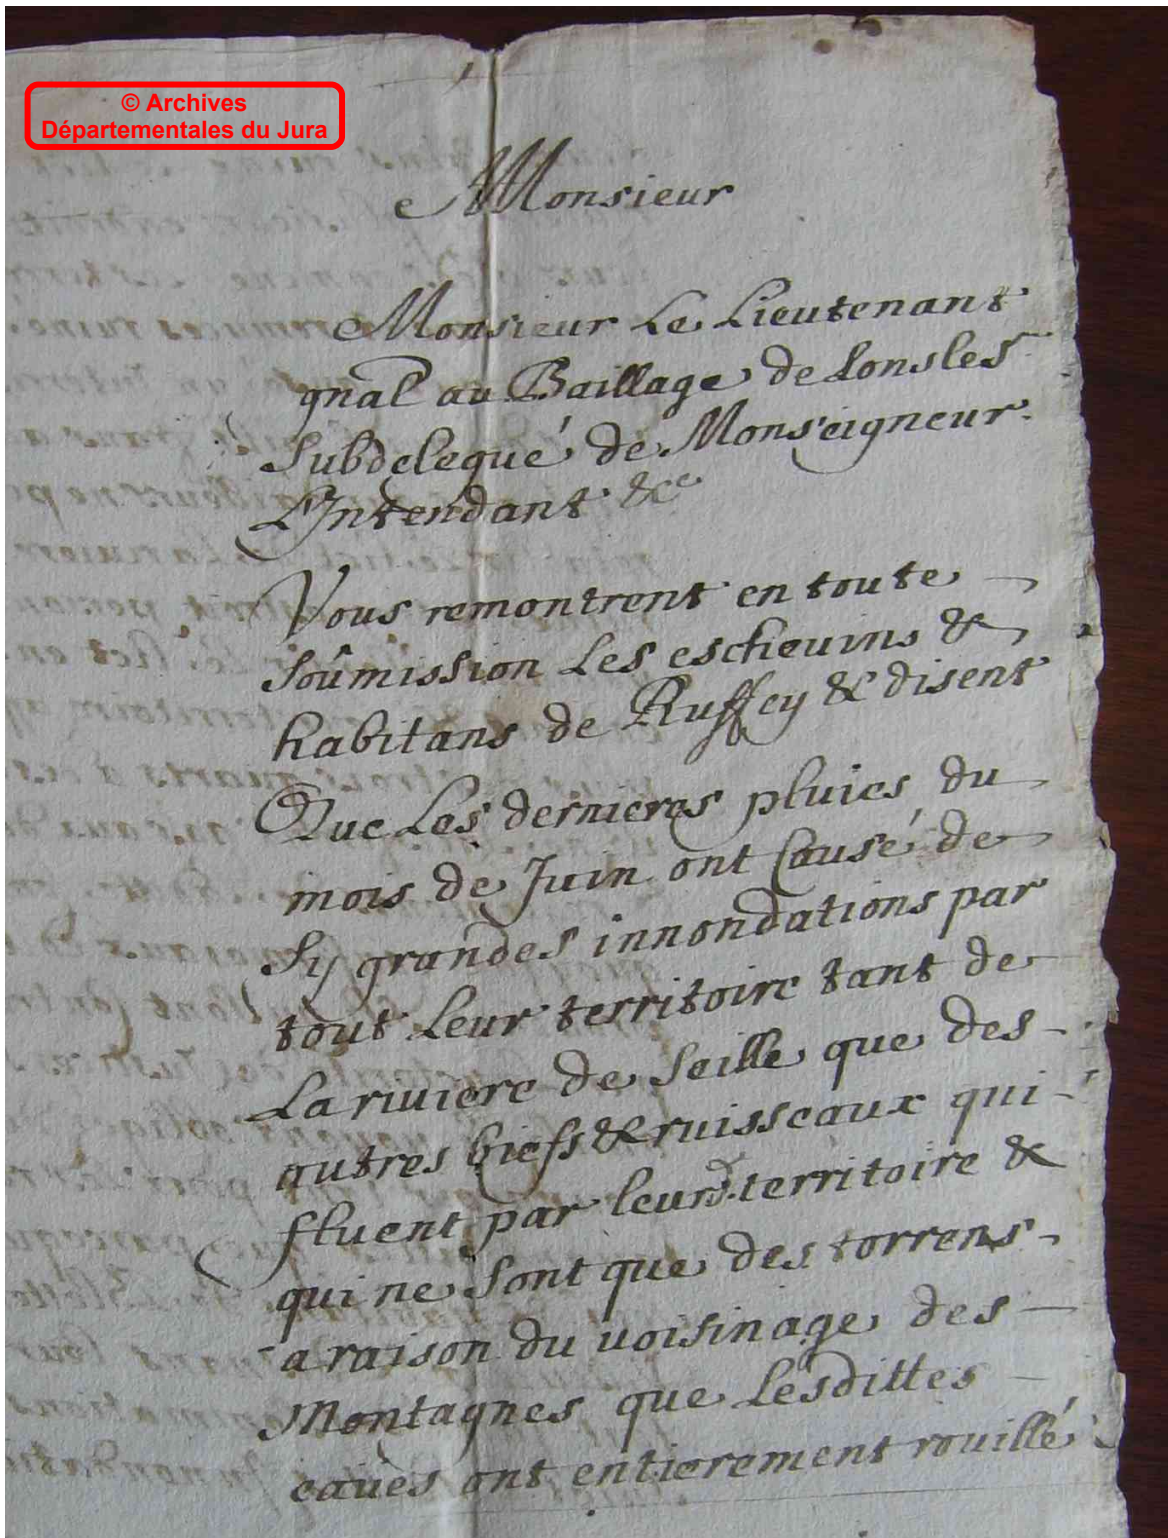 © Archives
Départementales du Jura
Monsieur
Monsieur Le Lieutenant
gnal au Baillage de Lonsles
Subdelegué de Monseigneur
L'Intendant &c
Vous remontrent en toute
soûmission Les escheuins &
habitans de Ruffey & disent
Que Les dernieres pluies du
mois de Juin ont Causé de
Sy grandes innondations par
tout Leur territoire tant de
La riuiere de Seille que des
autres biefs & ruisseaux qui
fluent par leurd. territoire &
qui ne Sont que des torrens
a raison du uoisinage des
Montagnes que Lesdittes
eaües ont entierement rouillé